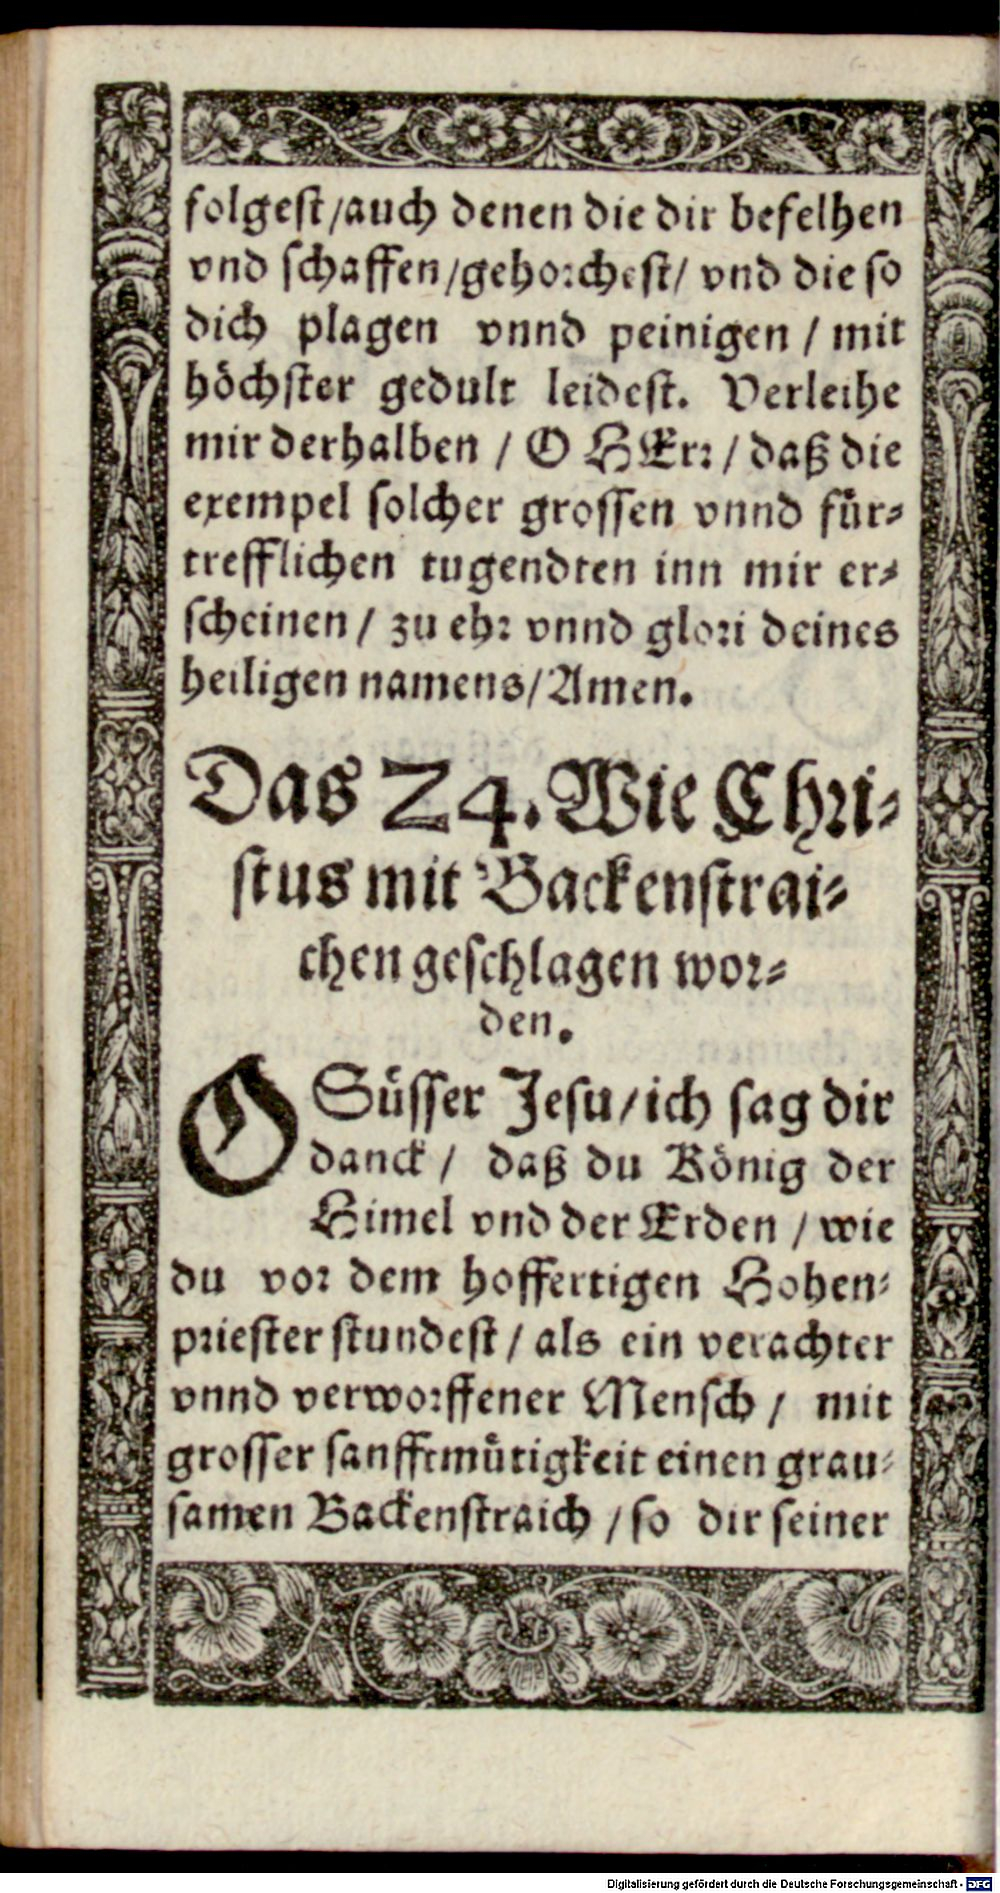 folgest/auch denen die dir befelhen
vnd schaffen/gehorchest/ vnd die so
dich plagen vnnd peinigen / mit
höchster gedult leidest. Verleihe
mir derhalben / O HErr / daß die
exempel solcher grossen vnnd für-
trefflichen tugendten inn mir er-
scheinen / zu ehr vnnd glori deines
heiligen namens/Amen.
Das 24. Wie Chri-
stus mit Backenstrai-
chen geschlagen wor-
den.
O Süsser Jesu/ich sag dir
danck / daß du König der
Himel vnd der Erden / wie
du vor dem hoffertigen Hohen-
priester stundest / als ein verachter
vnnd verworffener Mensch / mit
grosser sanfftmütigkeit einen grau-
samen Backenstraich / so dir seiner
Digitalisierung gefördert durch die Deutsche Forschungsgemeinschaft - DFG